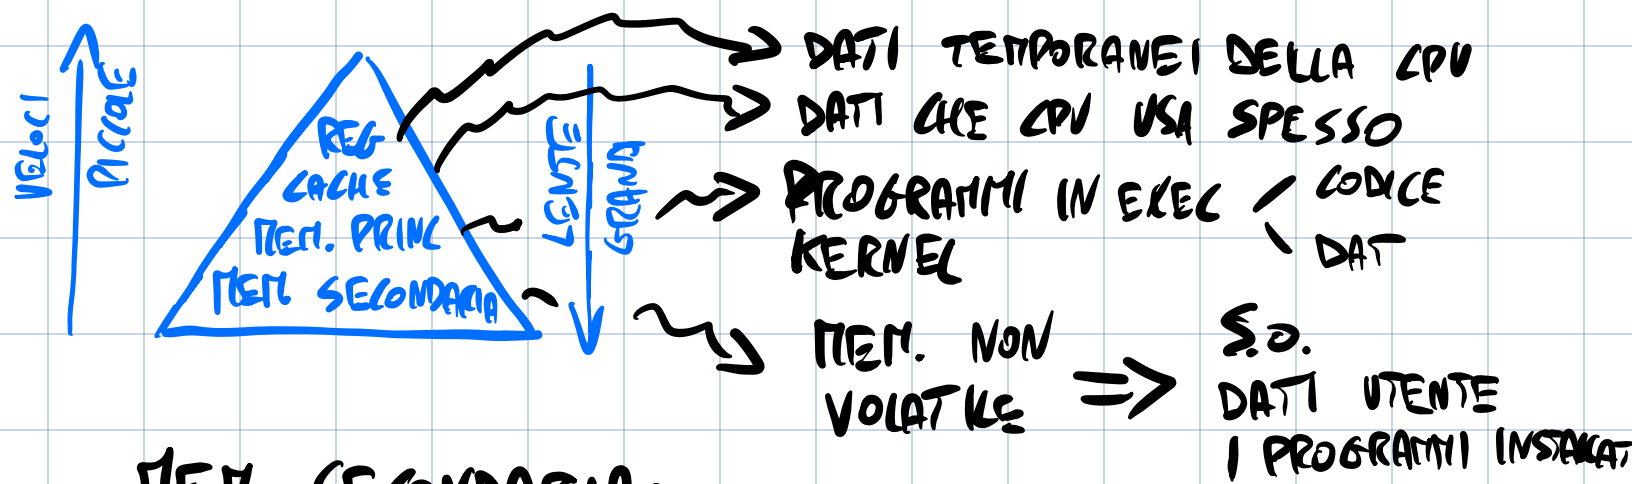 VELOCI
PICCOLE
REG
CACHE
MEM. PRINC
MEM. SECONDARIA
LENTE
GRANDI
DATI TEMPORANEI DELLA CPU
DATI CHE CPU USA SPESSO
PROGRAMMI IN EXEC
KERNEL
CODICE
DATI
MEM. NON
VOLATILE
S.O.
DATI UTENTE
I PROGRAMMI INSTALLATI
MEM SECONDARIA: